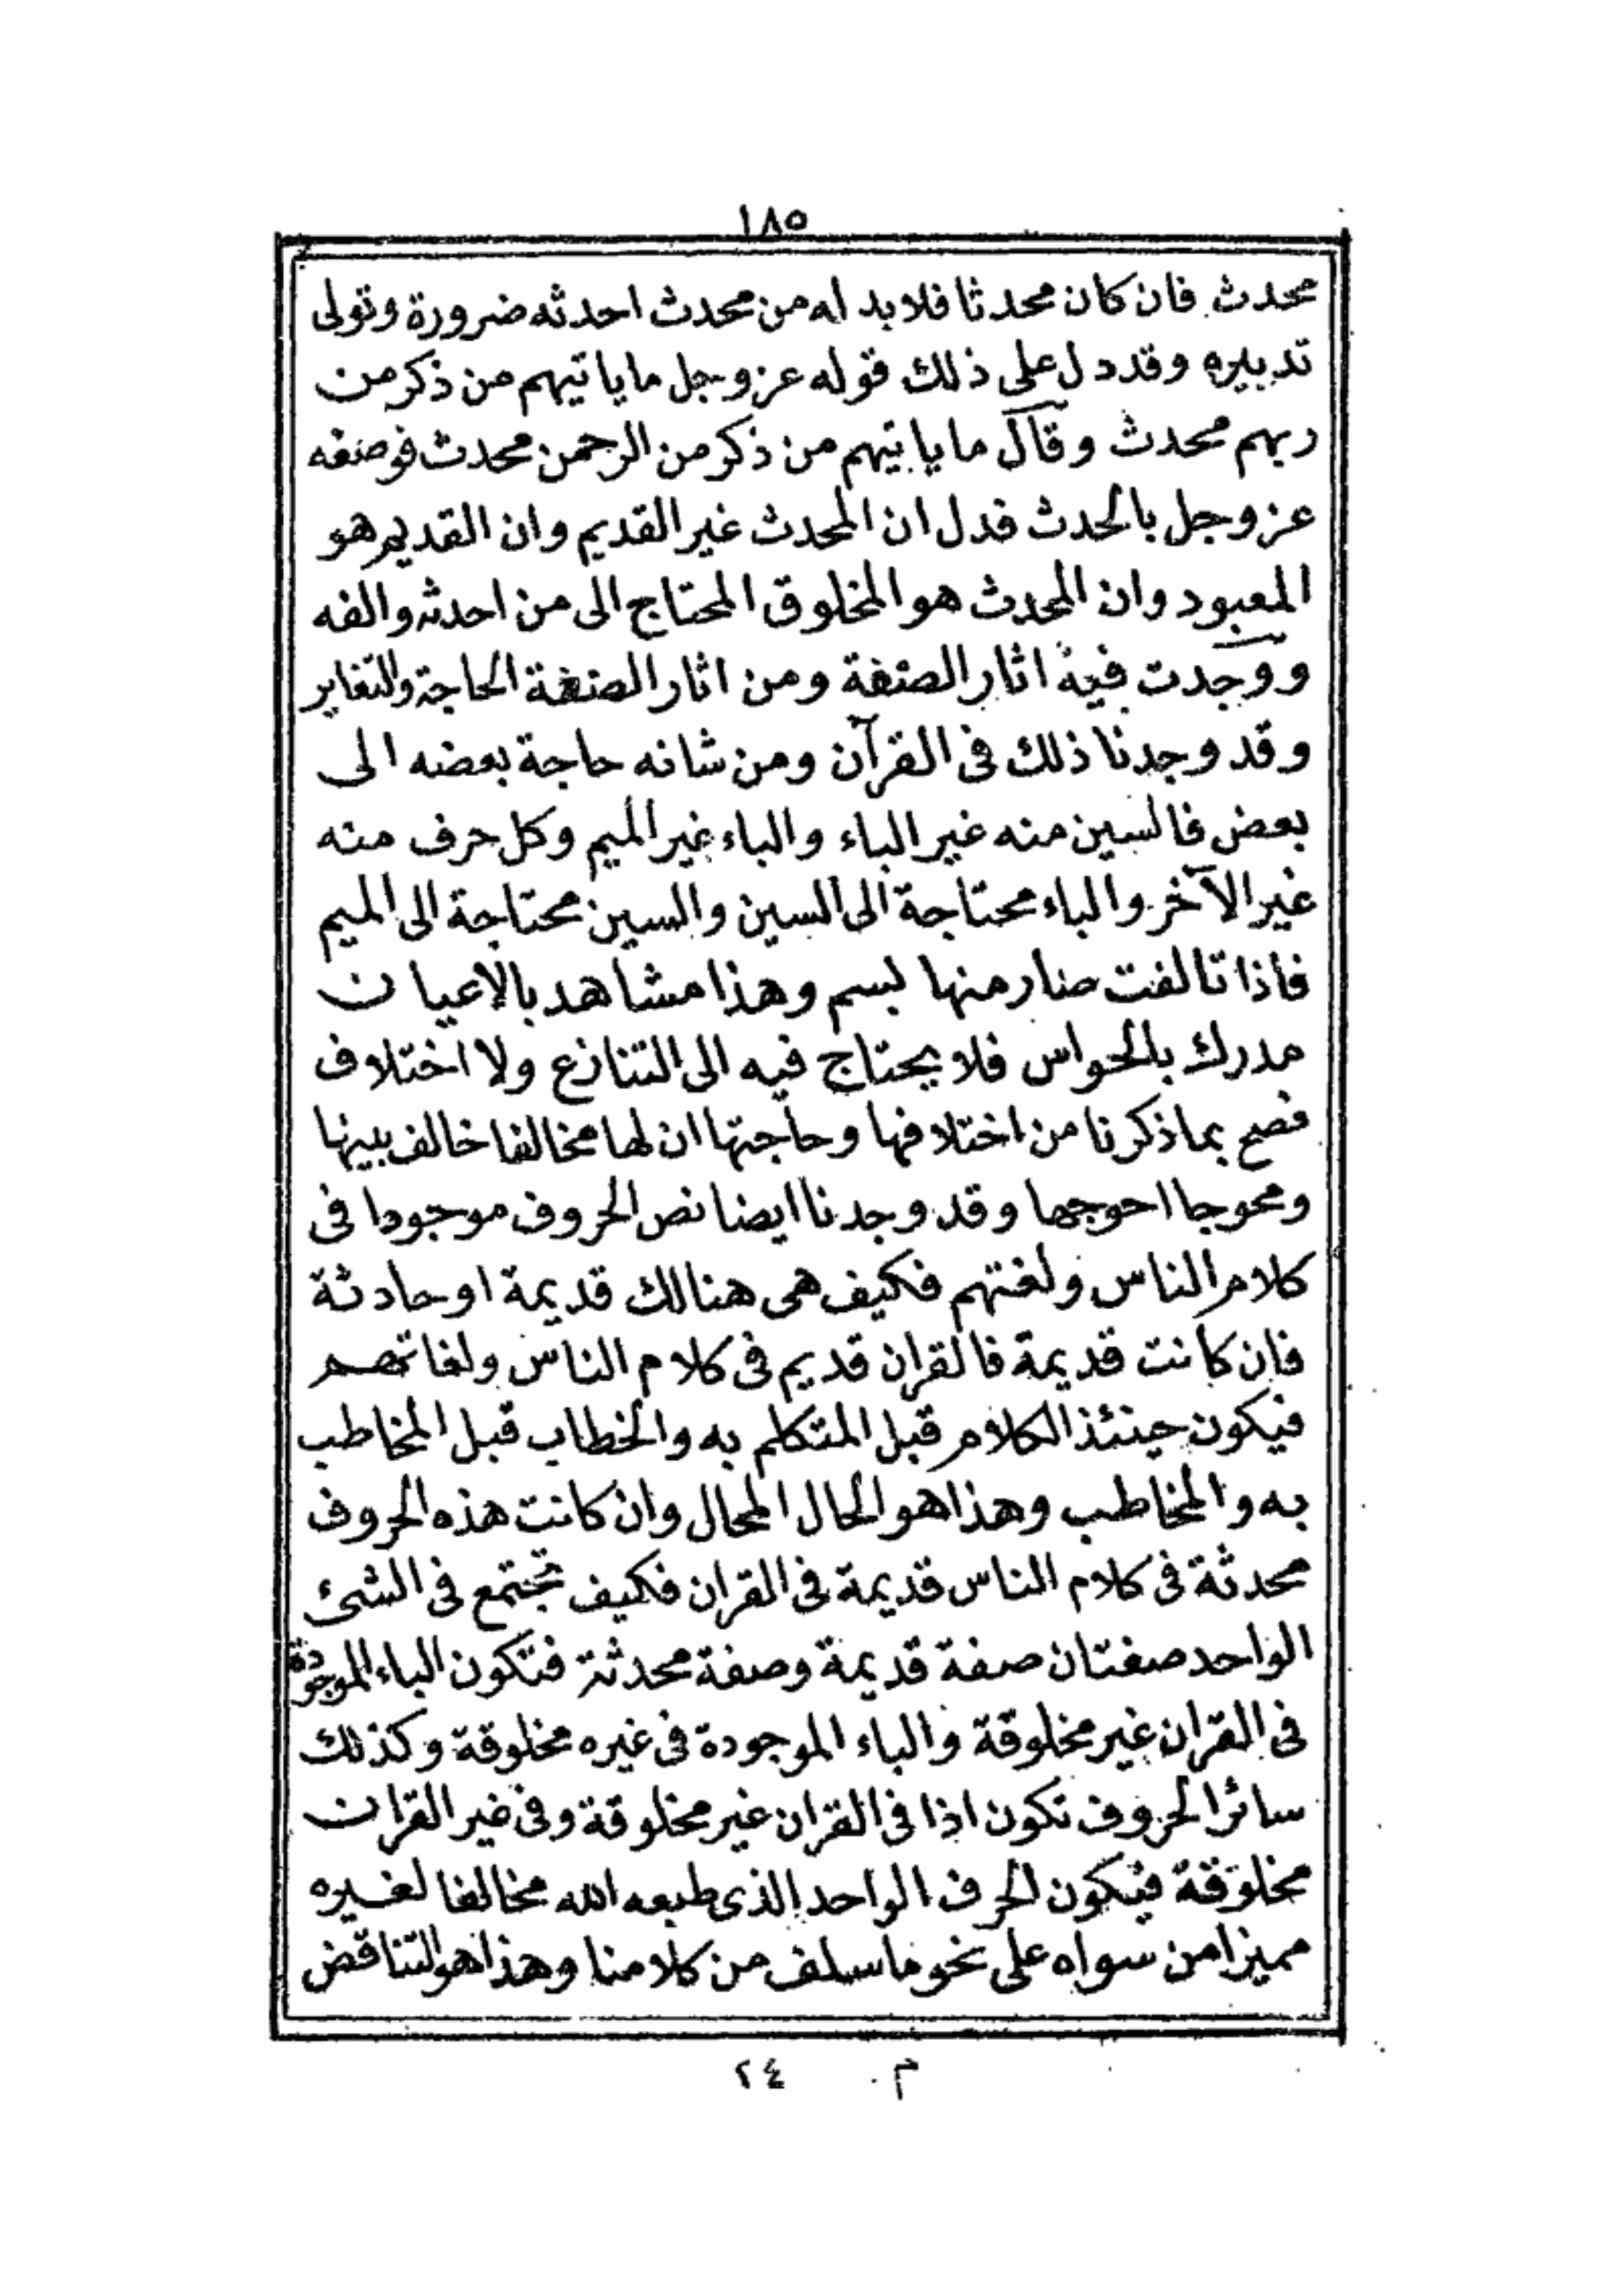 ١٨٥
محدث فان كان محدثا فلا بد له من محدث احدثه ضرورة وتولى
تدبيره وقد دل على ذلك قوله عز وجل ما ياتيهم من ذكر من
ربهم محدث وقال ما ياتيهم من ذكر من الرحمن محدث فوصفه
عز وجل بالحدث فدل ان المحدث غير القديم وان القديم هو
المعبود وان المحدث هو المخلوق المحتاج الى من احدثه والفه
ووجدت فيه اثار الصنعة ومن اثار الصنعة الحاجة والتغاير
وقد وجدنا ذلك فى القرآن ومن شانه حاجة بعضه الى
بعض فالسين منه غير الباء والباء غير الميم وكل حرف منه
غير الآخر والباء محتاجة الى السين والسين محتاجة الى الميم
فاذا تالفت صار منها لبسم وهذا مشاهد بالاعيان
مدرك بالحواس فلا يحتاج فيه الى التنازع ولا اختلاف
فصح بما ذكرنا من اختلافها وحاجتها ان لها مخالفا خالف بينها
ومحوجا احوجها وقد وجدنا ايضا نص الحروف موجودا فى
كلام الناس ولغتهم فكيف هى هنالك قديمة او حادثة
فان كانت قديمة فالقران قديم فى كلام الناس ولغاتهم
فيكون حينئذ الكلام قبل المتكلم به والخطاب قبل المخاطب
به والمخاطب وهذا هو الحال المحال وان كانت هذه الحروف
محدثة فى كلام الناس قديمة فى القران فكيف تجتمع فى الشئ
الواحد صفتان صفة قديمة وصفة محدثة فتكون الباء الموجودة
فى القران غير مخلوقة والباء الموجودة فى غيره مخلوقة وكذلك
سائر الحروف تكون اذا فى القران غير مخلوقة وفى غير القران
مخلوقة فيكون الحرف الواحد الذى طبعه الله مخالفا لغيره
مميزا من سواه على نحو ما سلف من كلامنا وهذا هو التناقض
م ٢٤